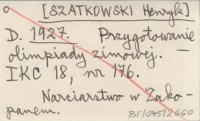 o [SZATKOWSKI Henryk]
D. 1927. Przygotowanie
olimpiady zimowej. —
IKC 18, nr 176.
Narciarstwo w Zako-
panem.
BF/045/2660